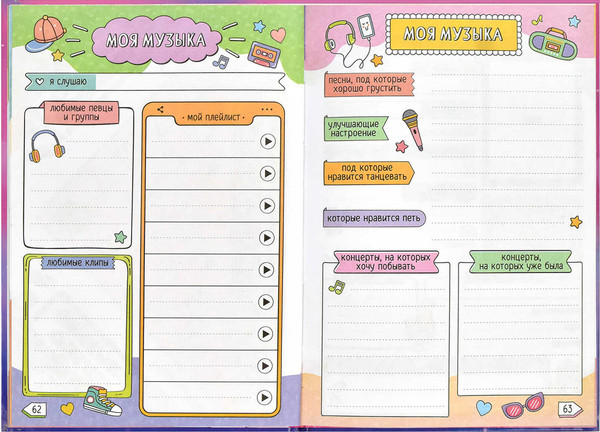 МОЯ МУЗЫКА
я слушаю
любимые певцы
и группы
мой плейлист
любимые клипы
62
МОЯ МУЗЫКА
песни, под которые
хорошо грустить
улучшающие
настроение
под которые
нравится танцевать
которые нравится петь
концерты, на которых
хочу побывать
концерты,
на которых уже была
63